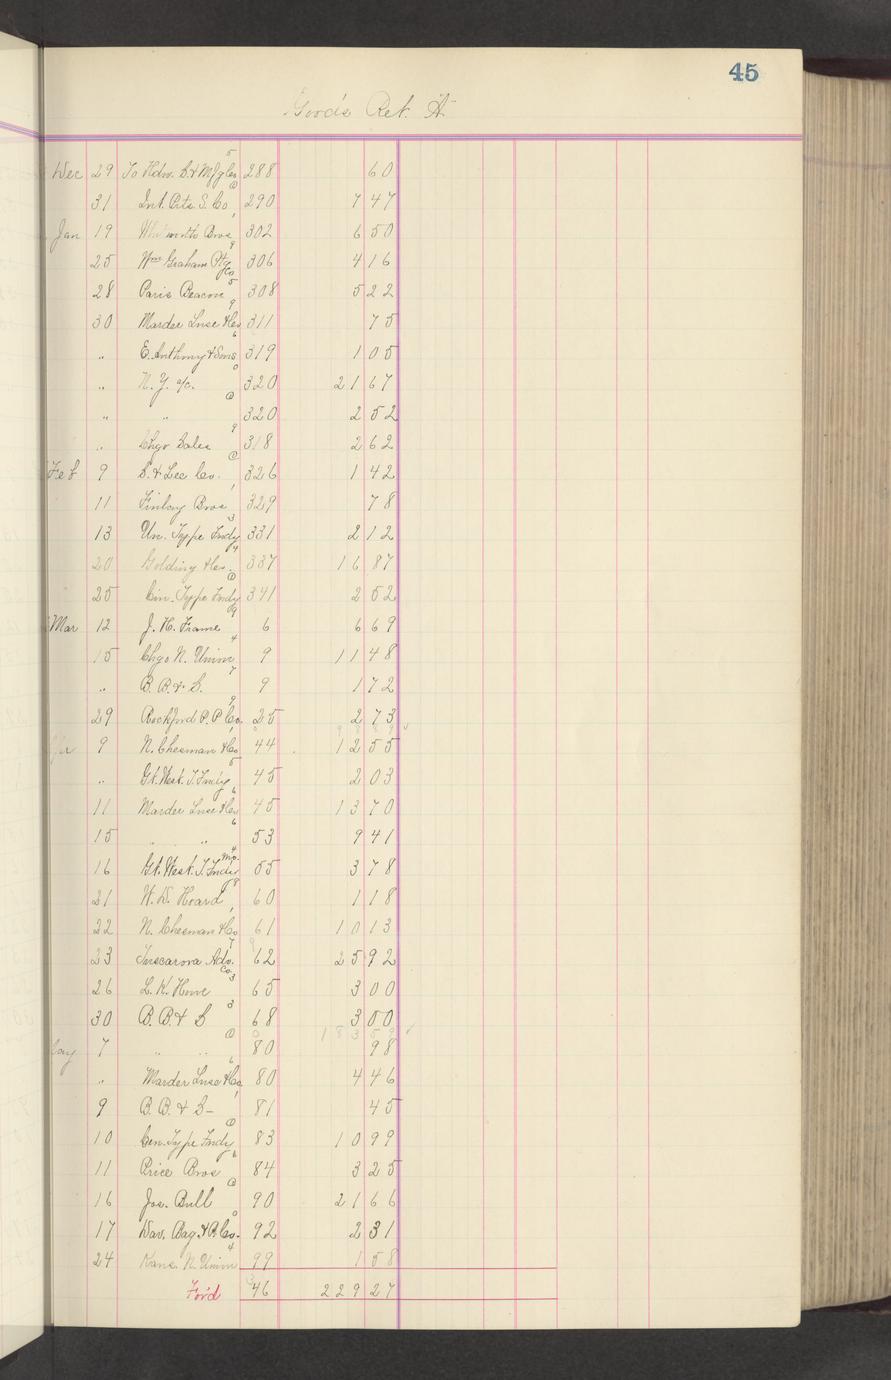 45
Goods Ret. A
Dec 29 To Hdw. S. & Mfg Co 5 288 60
31 Int. Ptg. S. Co 290 7 47
Jan 19 Bros 302 6 50
25 Wm Graham Ptg Co 306 4 16
28 Paris Beacon 308 5 22
30 Marder Luse & Co 311 75
" E. Anthony & Sons 319 1 05
" N. Y. a/c. 320 21 67
" " 320 2 52
" Chgo Sales 318 2 62
Feb 9 S. & Lee Co. 326 1 42
11 Finlay Bros 329 78
13 Un. Type Fndy 331 2 12
20 Golding & Co. 337 16 87
25 Cin. Type Fndy 341 2 52
Mar 12 J. H. Frame 6 6 69
15 Chgo N. Union 9 11 48
" B. B. & S. 9 1 72
29 Rockford P. P. Co. 25 2 73
9 N. Chesman & Co 44 12 55
" Gt. West. T. Fndy 45 2 03
11 Marder Luse & Co 45 13 70
15 " " 53 9 41
16 Gt. West. T. Fndy 55 3 78
21 W. D. Hoard 60 1 18
22 N. Chesman & Co 61 10 13
23 Tuscarora Adv. Co 62 25 92
26 L. K. Howe 65 3 00
30 B. B. & S 68 3 00
183 59 ✓
ay 7 " " 80 98
" Marder Luse & Co 80 4 46
9 B. B. & S- 81 45
10 Cen. Type Fndy 83 10 99
11 Price Bros 84 3 25
16 Jos. Bull 90 21 66
17 Dav. Bag & P. Co. 92 2 31
24 Kans. N. Union 99 1 58
Fo'd 46 229 27